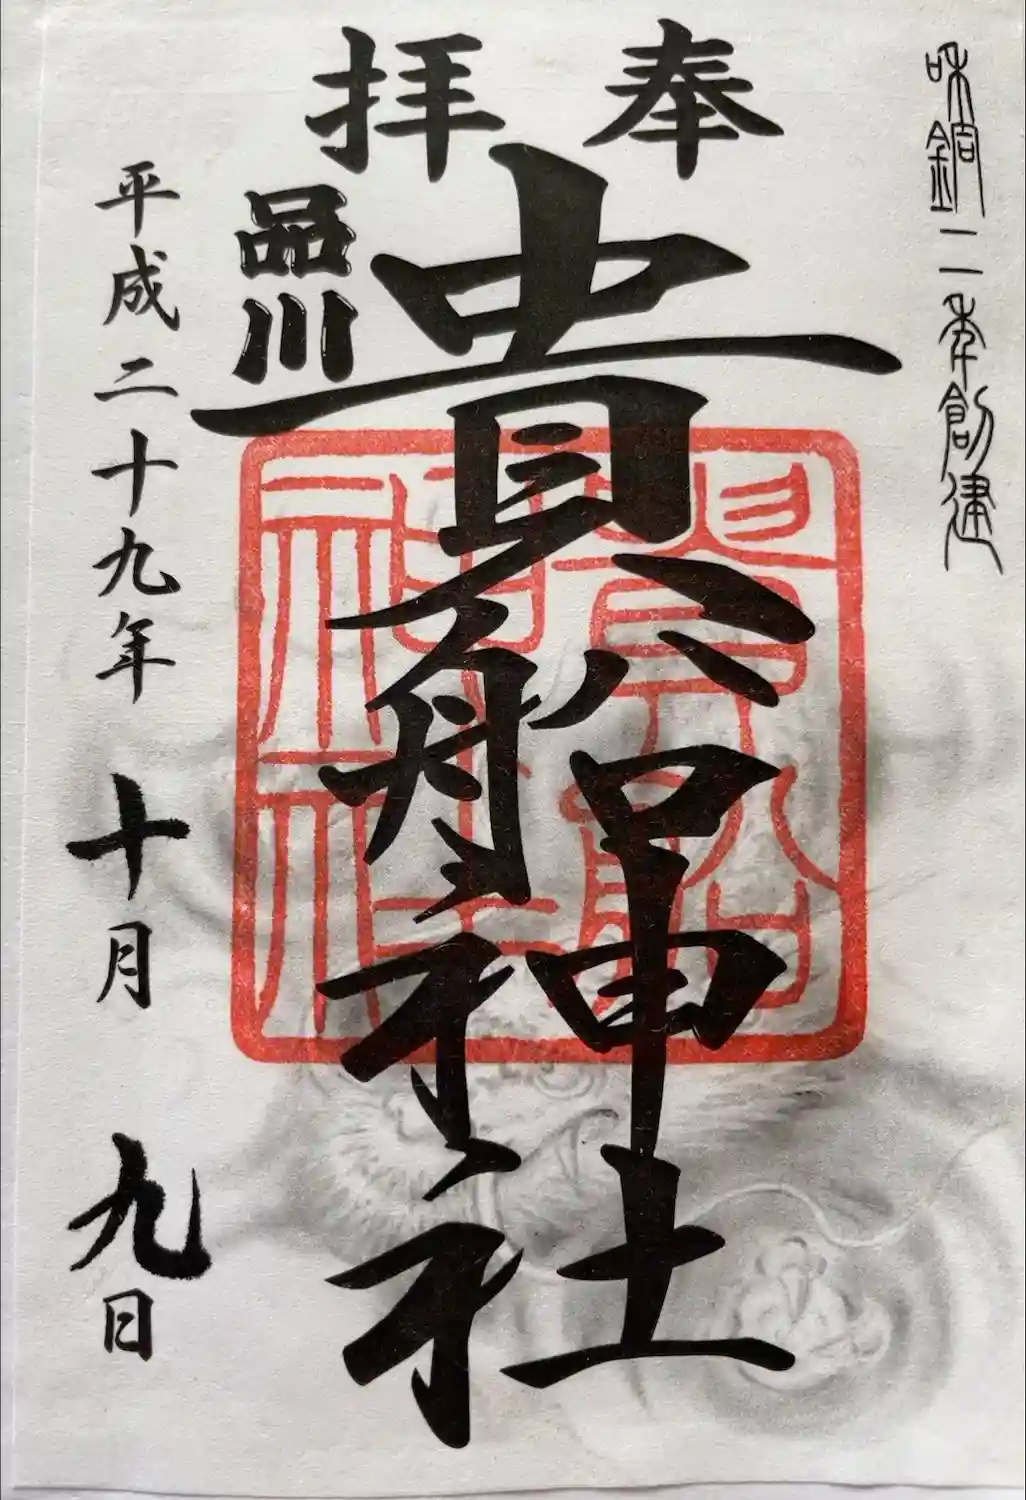 和銅二年創建
奉拝
貴船神社
貴船神社
品川
平成二十九年十月九日